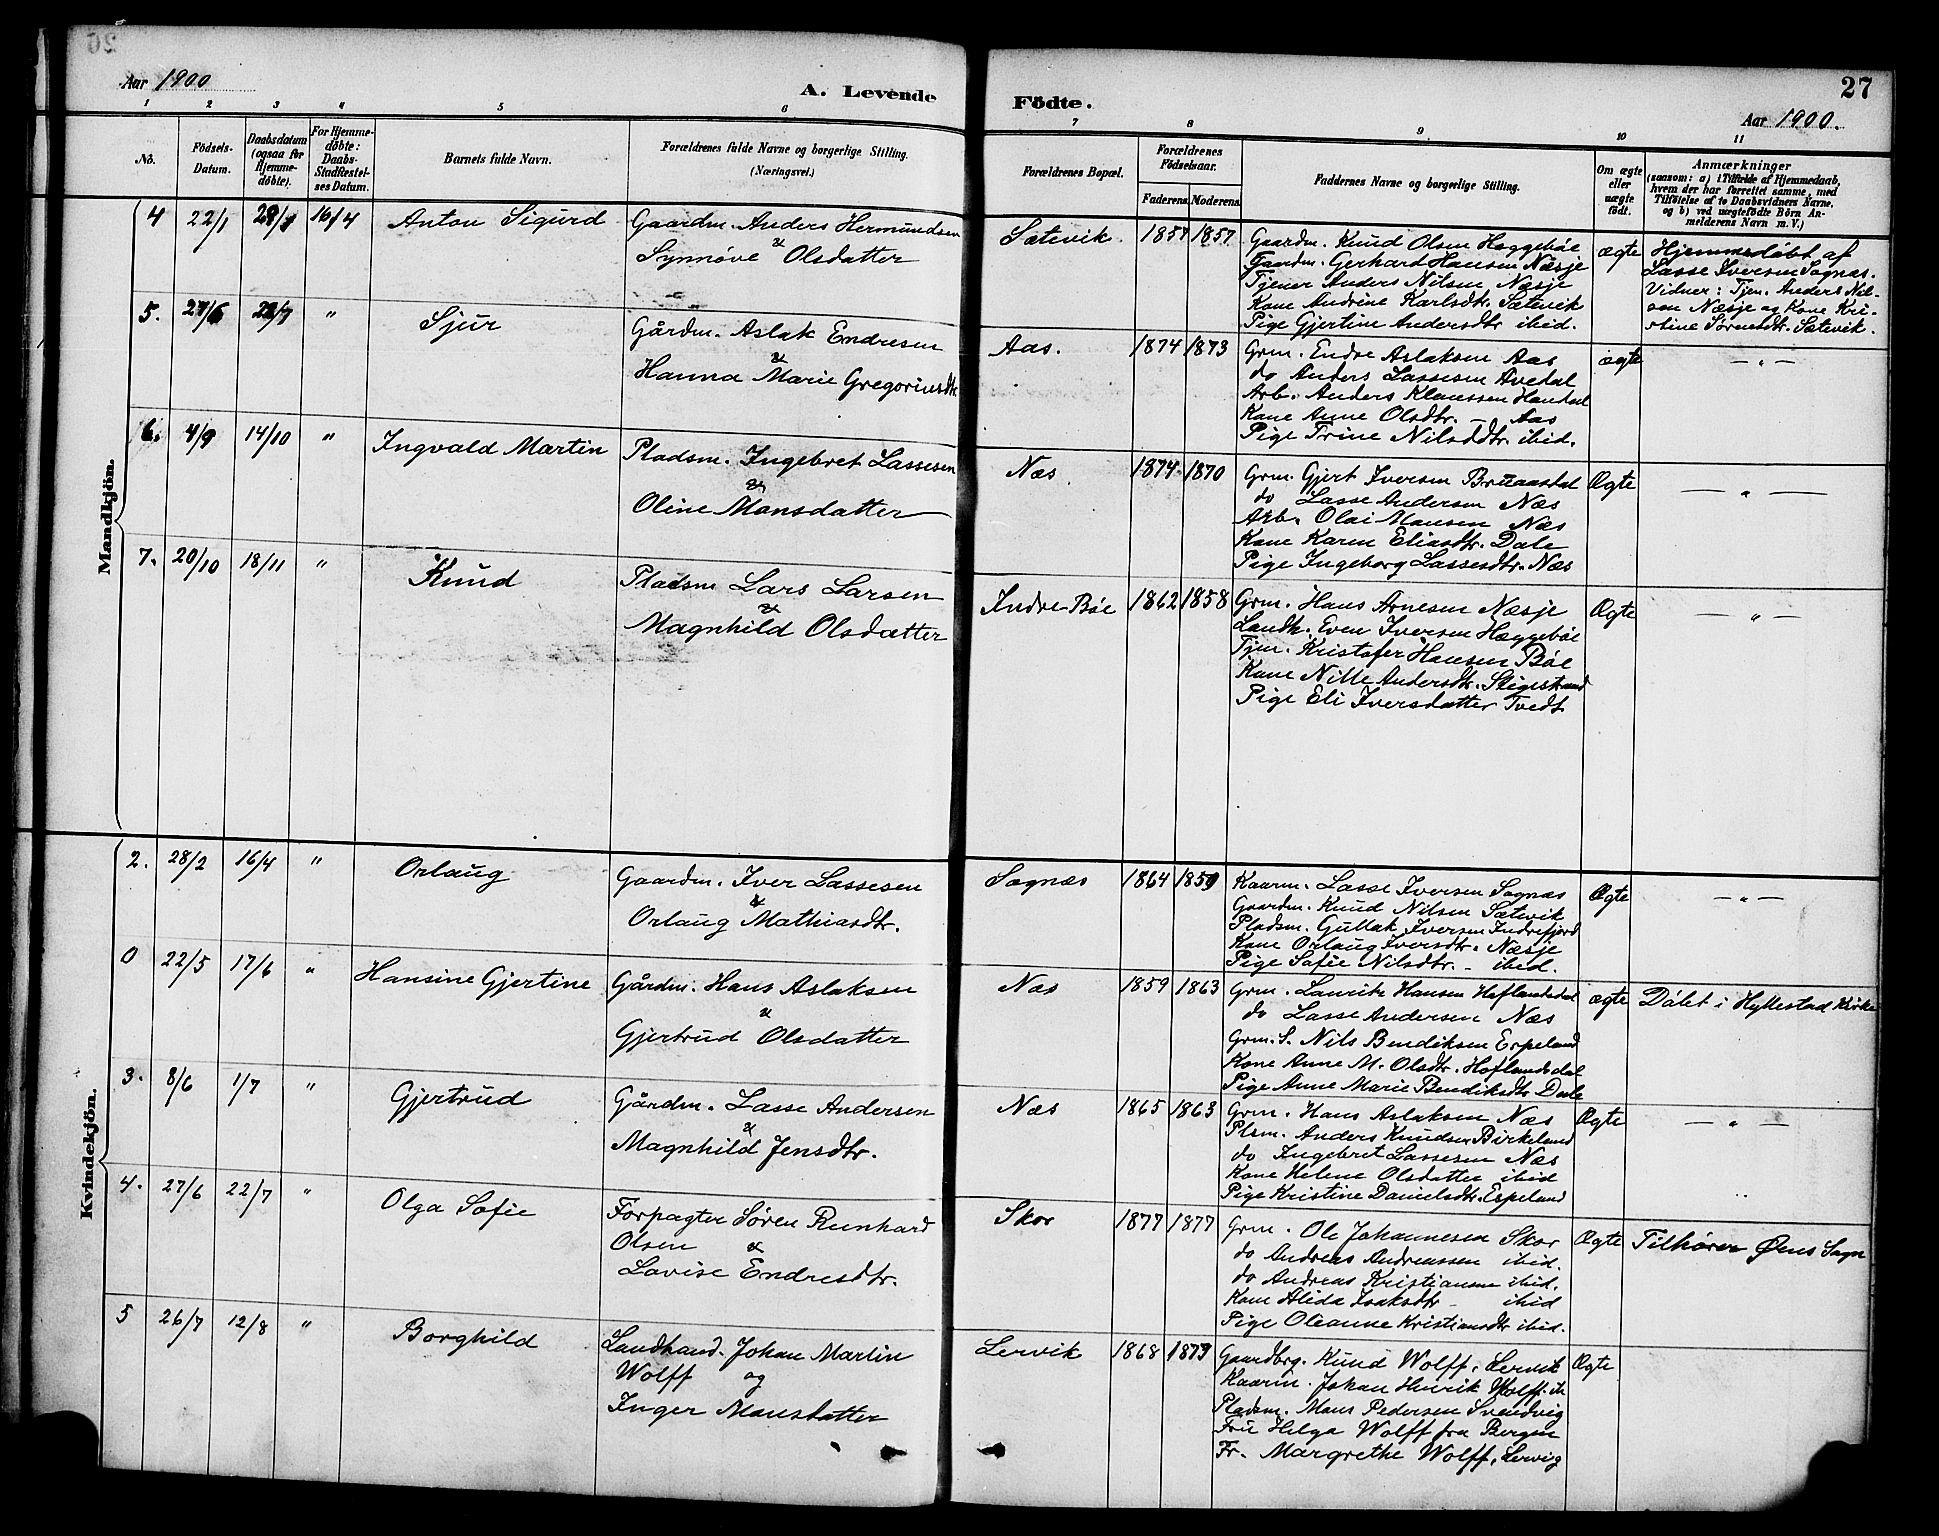 Aar 1900
A. Levende
Födte.
27
Aar 1900.
1 2 3 4 5 6 7 8 9 10 11
No.
Födsels-
Datum.
Daabsdatum
(ogsaa for
Hjemme-
döbte).
For Hjemme-
döbte:
Daabs-
Stadfæstel-
ses Datum.
Barnets fulde Navn.
Forældrenes fulde Navne og borgerlige Stilling.
(Næringsvei.)
Forældrenes Bopæl.
Forældrenes
Födselsaar.
Faderens. Moderens.
Faddernes Navne og borgerlige Stilling.
Om ægte
eller
uægte
födt.
Anmærkninger
(saasom: a) i Tilfælde af Hjemmedaab,
hvem der har forrettet samme, med
Tilföielse af to Daabsvidners Navne.
og b) ved uægtefödte Börn An-
melderens Navn m. V.)
Mandkjön.
4 22/1 16/4 Anton Sigurd
Gaardm. Anders Hermundsen
&
Synnøve Olsdatter
Sætevik 1857 1857
Gaardm. Knud Olsen Hæggebøe
Gaardm. Gerhard Hansen Næsje
Tjener Anders Nilsen Næsje
Kone Andrine Karlsdtr. Sætevik
Pige Gjertine Andersdtr ibid.
ægte
Hjemmedøbt af
Lasse Iversen Sognæs.
Vidner: Tjen. Anders Nil-
sen Næsje og Kone Kri-
stine Sørensdtr. Sætevik.
5. 22/7 " Sjur
Gårdm. Aslak Endresen
&
Hanna Marie Gregoriusdtr.
Aas. 1874 1873
Grm. Endre Aslaksen Aas
do Anders Lassesen Avedal
Arb. Anders Klaussen
Kone Anne Olsdtr. - Aas
Pige Trine Nilsddtr. ibid.
ægte
— " —
6. 4/9 14/10 " Ingvald Martin
Pladsm. Ingebret Lassesen
&
Oline Monsdatter
Næs 1874 1870
Grm. Gjert Iversen
do Lasse Andersen Næs
Arb. Olai Monsen Næs
Kone Karen Eliasdtr. Dale
Pige Ingeborg Lassesdtr. Næs
Ægte
— " —
7. 20/10 18/11 " Knud
Pladsm Lars Larsen
&
Magnhild Olsdatter
Indre Bøe 1862 1858
Grm. Hans Arnesen Næsje
Landh. Even Iversen Hæggebøe
Tjen. Kristofer Hansen Bøe
Kone Nille Andersdtr. Stigestrand
Pige Eli Iversdatter Tvedt
Ægte
— " —
Kvindekjön.
2. 28/2 16/4 " Orlaug
Gaardm. Iver Lassesen
&
Orlaug Mathiasdtr.
Sognæs 1864 1859
Kaarm. Lasse Iversen Sognæs
Gaardm. Knud Nilsen Sætevik
Pladsm. Gullak Iversen Indrefjord
Kone Orlaug Iversdtr. Næsje
Pige Sofie Nilsdtr. - ibid.
Ægte
— " —
0 22/5 17/6 " Hansine Gjertine
Gårdm. Hans Aslaksen
&
Gjertrud Olsdatter
Næs 1859 1863
Grm. Lauritz Hansen Hoflandsdal
do Lasse Andersen Næs
Grm. S. Nils Bendiksen Espeland
Kone Anne M. Olsdtr. Hoflandsdal
Pige Anne Marie Bendiksdtr Dale
ægte
Døbt i Hyllestad Kirke
3. 8/6 1/7 " Gjertrud
Gårdm. Lasse Andersen
&
Magnhild Jensdtr.
Næs 1865 1863
Grm. Hans Aslaksen Næs
Plsm. Anders Knudsen Birkeland
do Ingebret Lassesen Næs
Kone Helene Olsdatter ibid
Pige Kristine Danielsdtr. Espeland
Ægte
— " —
4. 27/6 22/7 " Olga Sofie
Forpagter Søren Reinhard
Olsen &
Lovise Endresdtr.
Skor 1877 1877
Grm. Ole Johannesen Skor
do Andreas Andreassen ibid.
do Andreas Kristiansen ibid.
Kone Alida Isaksdtr - ibid
Pige Oleanne Kristiansdtr ibid.
Ægte
Tilhører Øens Sogn
5 26/7 12/8 " Borghild
Landhand. Johan Martin
Wolff og
Inger Monsdatter
Lervik 1868 1873
Gaardbrg. Knud Wolff, Lervik
Kaarm. Johan Henrik Wolff. ib
Pladsm. Mons Pedersen Svendvig
Fru Helga Wolff fra Bergen
Fr. Margrethe Wolff, Lervig
Ægte